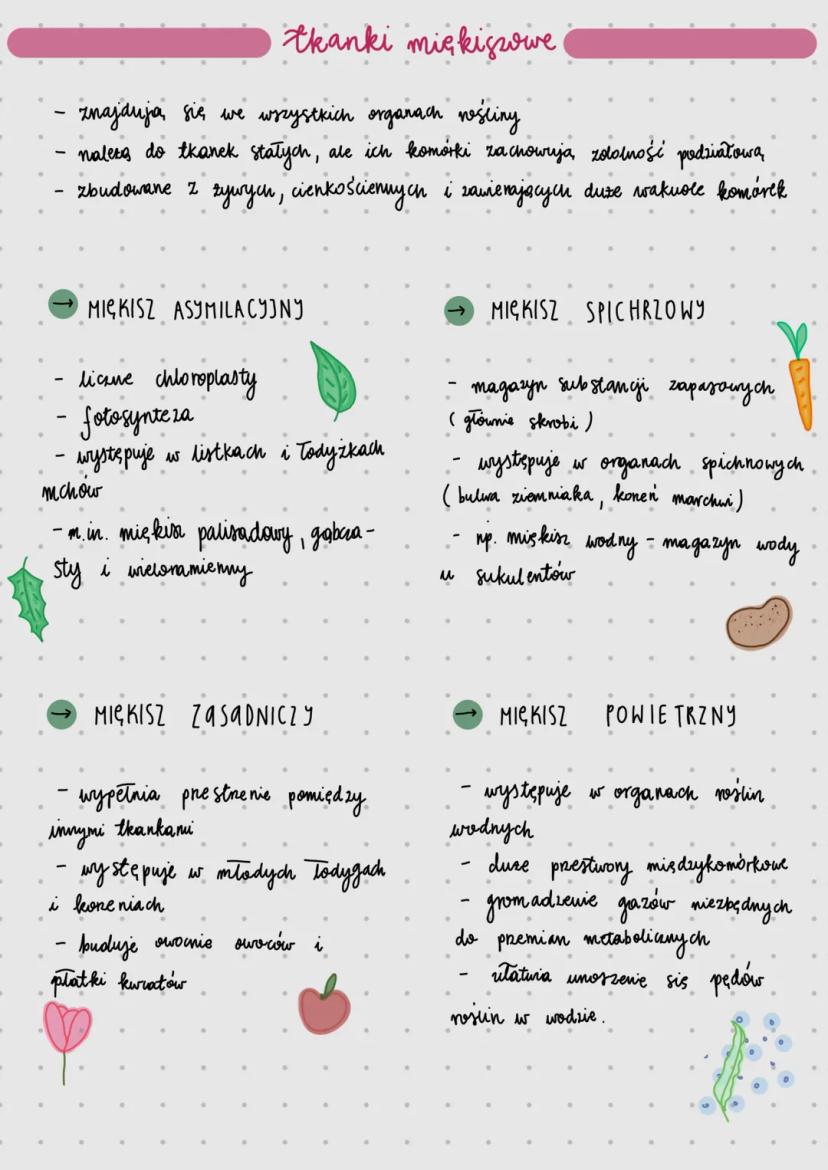 tkanki miękiszowe
- znajdują się we wszystkich organach rośliny
- należą do tkanek stałych, ale ich komórki zachowują zdolność podziałową
- zbudowane z żywych, cienkościennych i zawierających duże wakuole komórek
→ MIĘKISZ ASYMILACYJNY
- liczne chloroplasty
- fotosynteza
- występuje w listkach i łodyżkach
mchów
- m.in. miękisz palisadowy, gąbcza-
sty i wieloramienny
→ MIĘKISZ SPICHRZOWY
- magazyn substancji zapasowych
(głównie skrobi)
- występuje w organach spichrzowych
(bulwa ziemniaka, korzeń marchwi)
- np. miękisz wodny - magazyn wody
u sukulentów
→ MIĘKISZ ZASADNICZY
- wypełnia przestrzenie pomiędzy
innymi tkankami
- występuje w młodych łodygach
i korzeniach
- buduje owocnie owoców i
płatki kwiatów
→ MIĘKISZ POWIETRZNY
- występuje w organach roślin
wodnych
- duże przestwory międzykomórkowe
- gromadzenie gazów niezbędnych
do przemian metabolicznych
- ułatwia unoszenie się pędów
roślin w wodzie.